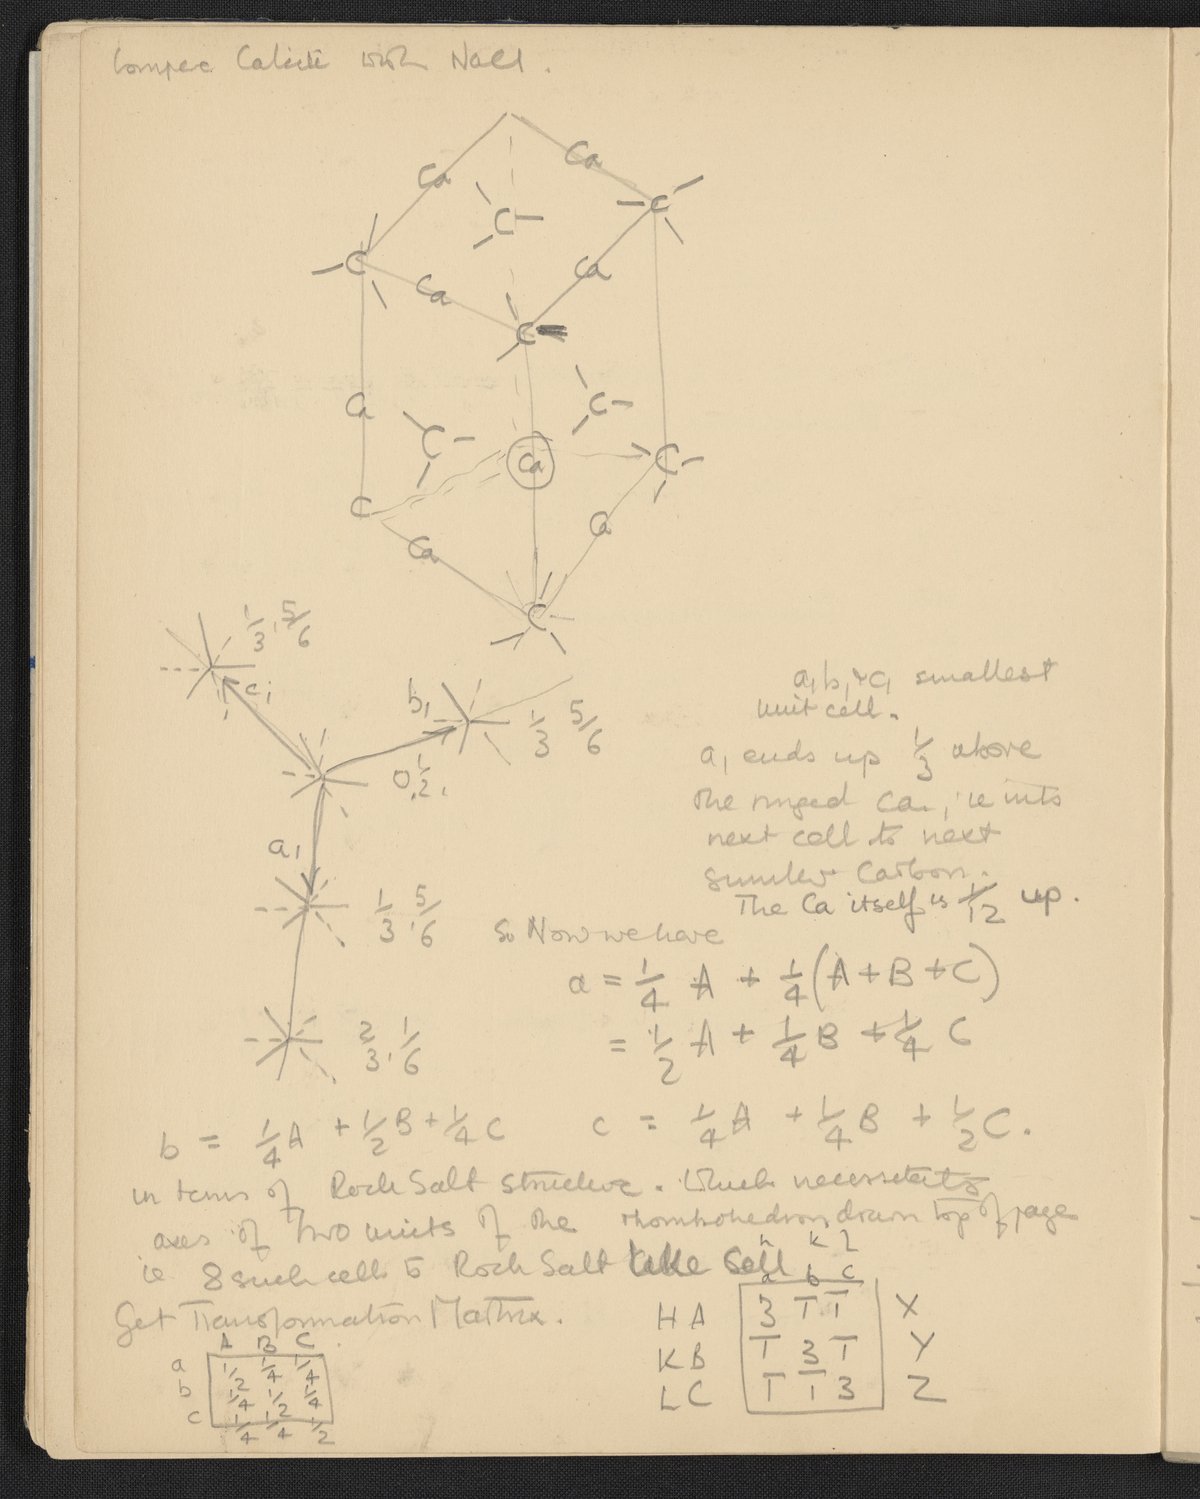 Compare Calcite with NaCl.
Ca Ca
C C
C
Ca Ca
C
Ca C C
Ca
C C
Ca Ca
C
1/3, 5/6
c₁
b₁
1/3 5/6
0, 1/2,
a₁
1/3, 5/6
2/3, 1/6
a₁ b₁ & c₁ smallest
unit cell.
a₁ ends up 1/3 above
the ringed Ca, ie into
next cell to next
similar Carbon.
The Ca itself is 1/12 up.
So Now we have
a = 1/4 A + 1/4 (A + B + C)
= 1/2 A + 1/4 B + 1/4 C
b = 1/4 A + 1/2 B + 1/4 C c = 1/4 A + 1/4 B + 1/2 C.
in terms of Rock Salt structure. Which necessitates
axes of two units of the rhombohedron drawn top of page
ie 8 such cells to Rock Salt like cell
Get Transformation Matrix.
A B C
a 1/2 1/4 1/4
b 1/4 1/2 1/4
c 1/4 1/4 1/2
h k l
a b c
H A 3 1̄ 1̄ X
K B 1̄ 3 1̄ Y
L C 1̄ 1̄ 3 Z